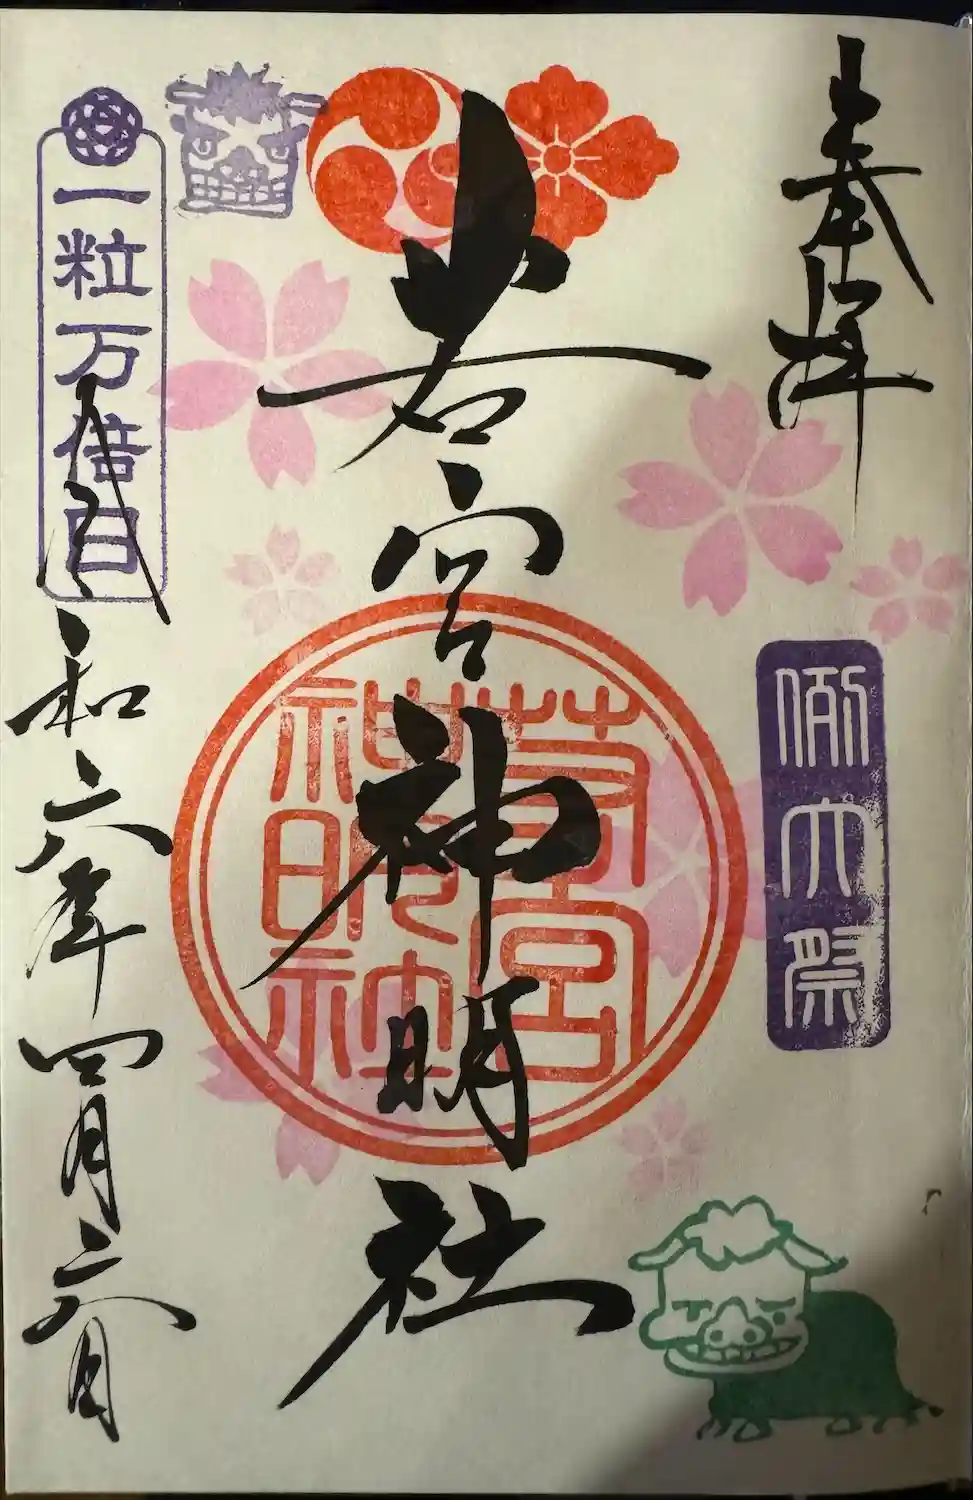 奉拝
例大祭
若宮神明社
若宮
神明社
一粒万倍日
令和六年四月六日